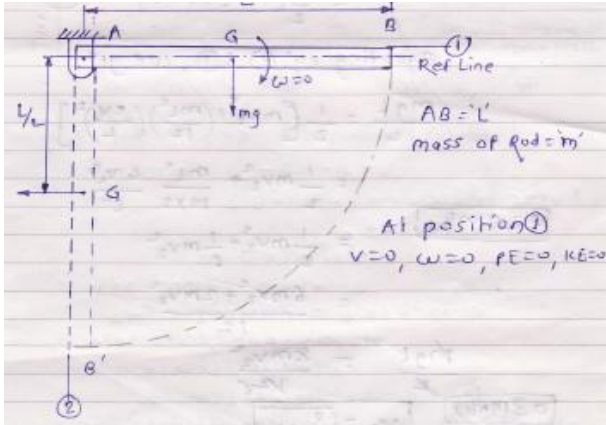 A G B ①
Ref Line
ω=0
L/2
mg
AB='L'
mass of Rod='m'
G
At position①
V=0, ω=0, PE=0, KE=0
B'
②